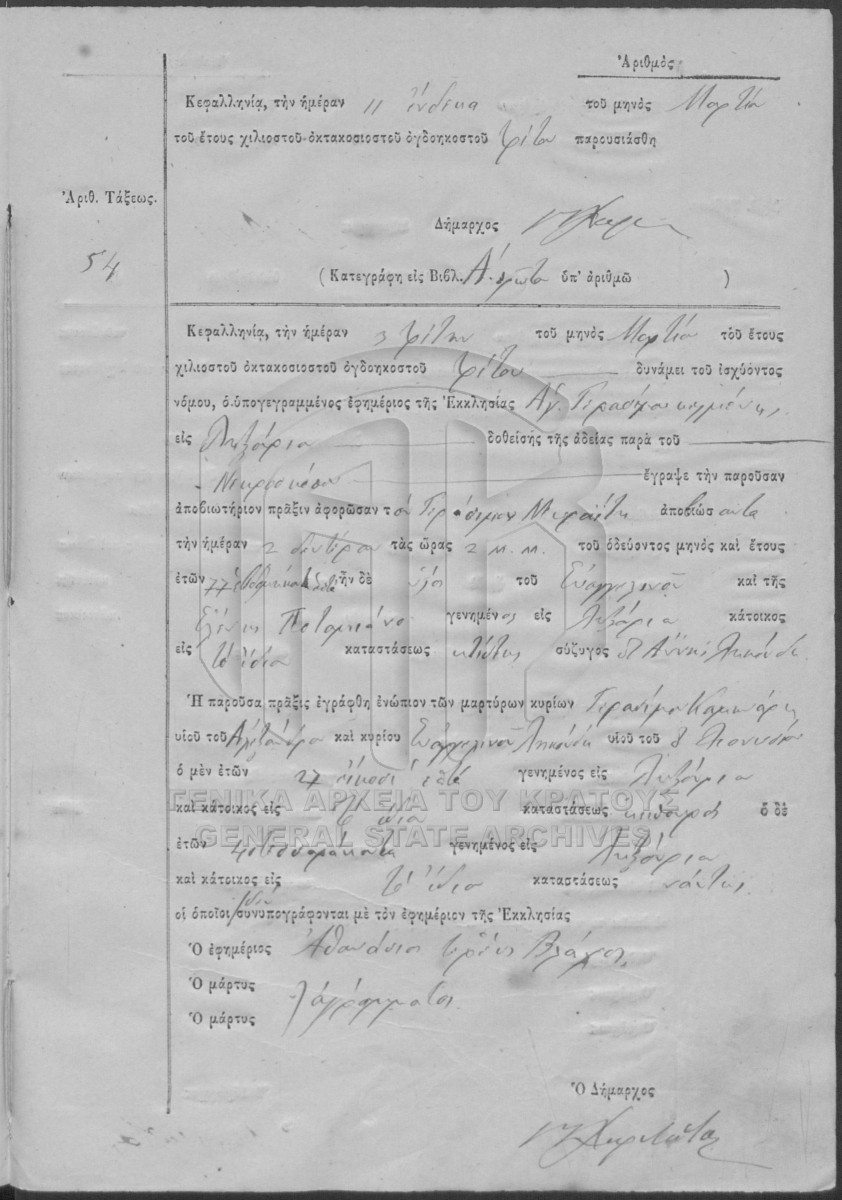 Ἀριθμὸς
Κεφαλληνίᾳ, τὴν ἡμέραν 11 ἕνδεκα τοῦ μηνὸς Μαρτίου
τοῦ ἔτους χιλιοστοῦ ὀκτακοσιοστοῦ ὀγδοηκοστοῦ τρίτου παρουσιάσθη
Ἀριθ. Τάξεως.
54
Δήμαρχος
(Κατεγράφη εἰς Βιβλ. Α. πρῶτον ὑπ' ἀριθμῷ )
Κεφαλληνίᾳ, τὴν ἡμέραν 3 τρίτην τοῦ μηνὸς Μαρτίου τοῦ ἔτους
χιλιοστοῦ ὀκτακοσιοστοῦ ὀγδοηκοστοῦ τρίτου δυνάμει τοῦ ἰσχύοντος
νόμου, ὁ ὑπογεγραμμένος ἐφημέριος τῆς Ἐκκλησίας Ἁγ. Γερασίμου
εἰς Ληξούριον δοθείσης τῆς ἀδείας παρὰ τοῦ
ἔγραψε τὴν παροῦσαν
ἀποβιωτήριον πρᾶξιν ἀφορῶσαν τὸν Γεράσιμον ἀποβιώσαντα
τὴν ἡμέραν 2 δευτέραν τὰς ὥρας 2 μ.μ. τοῦ ὁδεύοντος μηνὸς καὶ ἔτους
ἐτῶν 77 ἑβδομήκοντα ἑπτὰ ἦν δὲ υἱὸς τοῦ Εὐαγγελινοῦ καὶ τῆς
Ἑλένης γενημένος εἰς Ληξούριον κάτοικος
εἰς τὸ ἴδιον καταστάσεως κτίστης σύζυγος
Ἡ παροῦσα πρᾶξις ἐγράφθη ἐνώπιον τῶν μαρτύρων κυρίων Γερασίμου
υἱοῦ τοῦ καὶ κυρίου Εὐαγγελινοῦ υἱοῦ τοῦ Διονυσίου
ὁ μὲν ἐτῶν 27 εἴκοσι ἑπτὰ γενημένος εἰς Ληξούριον
καὶ κάτοικος εἰς τὸ ἴδιον καταστάσεως ὁ δὲ
ἐτῶν 40 τεσσαράκοντα γενημένος εἰς Ληξούριον
καὶ κάτοικος εἰς τὸ ἴδιον καταστάσεως ναύτης
οἱ ὁποῖοι δὲν συνυπογράφονται μὲ τὸν ἐφημέριον τῆς Ἐκκλησίας
Ὁ ἐφημέριος Ἀθανάσιος ἱερεὺς Βλάχος
Ὁ μάρτυς
ἀγράμματοι
Ὁ μάρτυς
Ὁ Δήμαρχος
ΓΕΝΙΚΑ ΑΡΧΕΙΑ ΤΟΥ ΚΡΑΤΟΥΣ
GENERAL STATE ARCHIVES